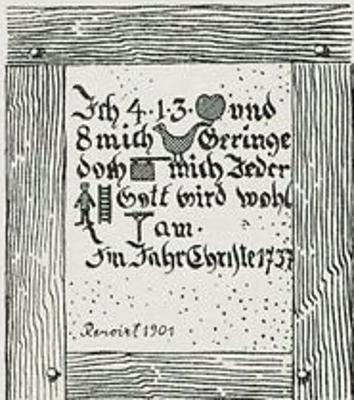 Ich 4·1·3· und
8 mich Geringe
doch mich Jeder
Gott wird wohl
am.
Im Jahr Christe 1737
Renovirt 1901